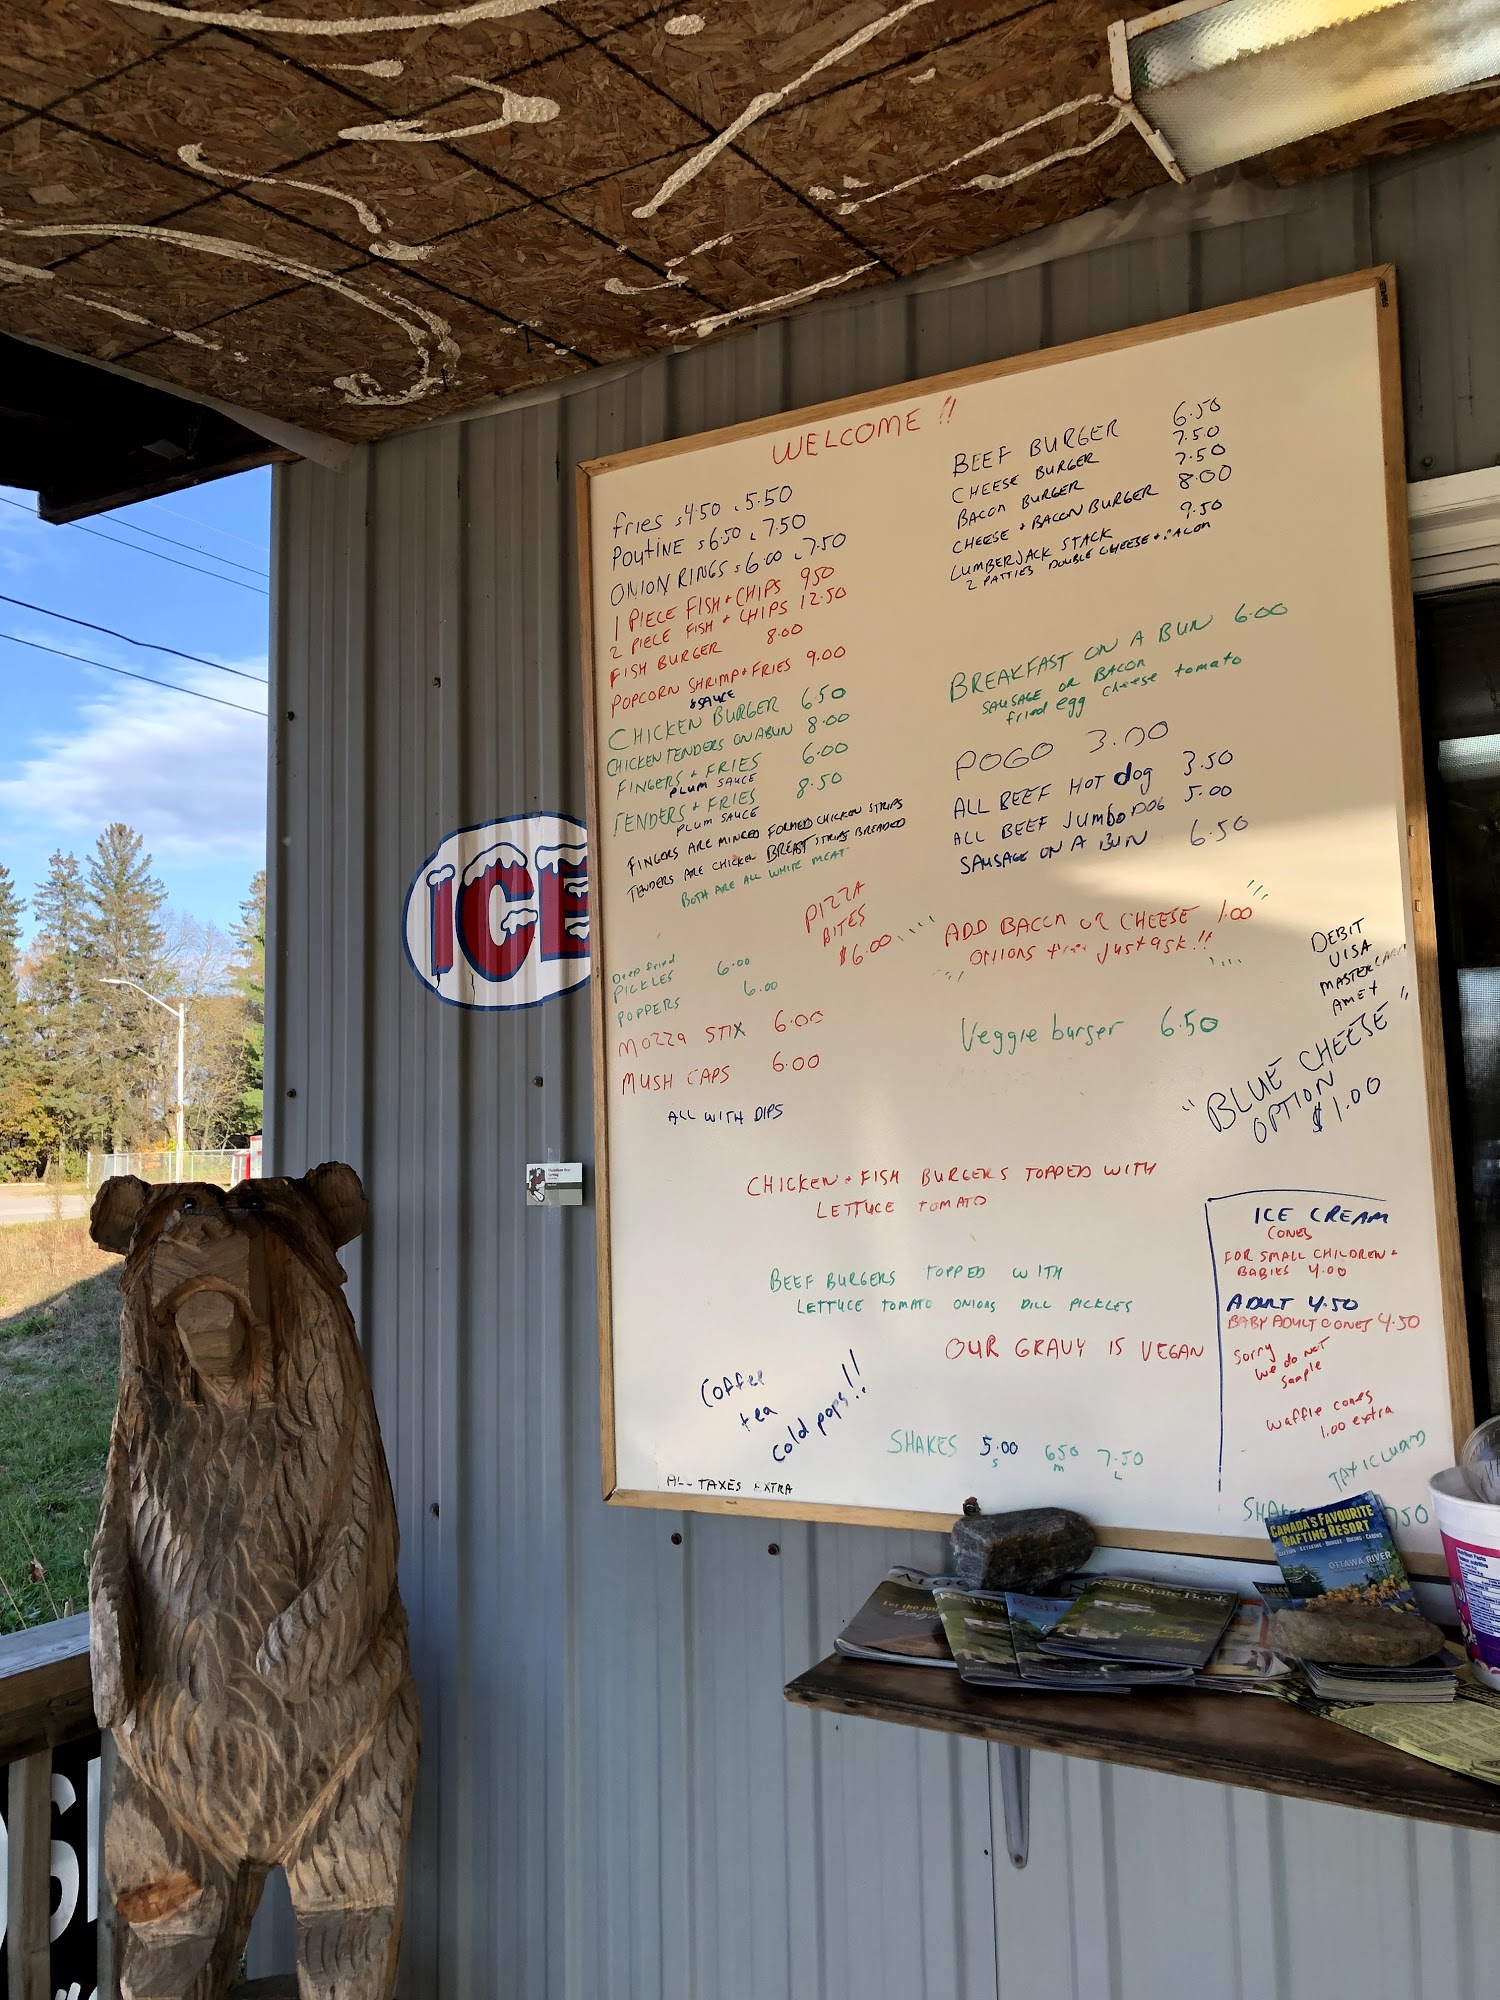 WELCOME !!
fries s 4.50 L 5.50
POUTINE s 6.50 L 7.50
ONION RINGS s 6.00 L 7.50
1 PIECE FISH + CHIPS 950
2 PIECE FISH + CHIPS 12.50
FISH BURGER 8.00
POPCORN SHRIMP + FRIES 9.00
& SAUCE
CHICKEN BURGER 6.50
CHICKEN TENDERS ON A BUN 8.00
FINGERS + FRIES 6.00
PLUM SAUCE
TENDERS + FRIES 8.50
PLUM SAUCE
FINGERS ARE MINCED FORMED CHICKEN STRIPS
TENDERS ARE CHICKEN BREAST STRIPS BREADED
BOTH ARE ALL WHITE MEAT
PIZZA
BITES
$6.00
Deep fried
PICKLES 6.00
POPPERS 6.00
MOZZA STIX 6.00
MUSH CAPS 6.00
ALL WITH DIPS
BEEF BURGER 6.50
CHEESE BURGER 7.50
BACON BURGER 7.50
CHEESE + BACON BURGER 8.00
LUMBERJACK STACK 9.50
2 PATTIES DOUBLE CHEESE + BACON
BREAKFAST ON A BUN 6.00
SAUSAGE OR BACON
fried egg cheese tomato
POGO 3.00
ALL BEEF HOT dog 3.50
ALL BEEF JUMBO DOG 5.00
SAUSAGE ON A BUN 6.50
ADD BACON OR CHEESE 1.00
ONIONS free Just ask!!
DEBIT
VISA
MASTERCARD
AMEX
Veggie burger 6.50
"BLUE CHEESE"
OPTION
$1.00
CHICKEN + FISH BURGERS TOPPED WITH
LETTUCE TOMATO
BEEF BURGERS TOPPED WITH
LETTUCE TOMATO ONIONS DILL PICKLES
OUR GRAVY IS VEGAN
Coffee
tea
cold pops!!
SHAKES 5.00 650 7.50
S M L
ALL TAXES EXTRA
ICE CREAM
CONES
FOR SMALL CHILDREN +
BABIES 4.00
ADULT 4.50
BABY ADULT CONES 4.50
Sorry
we do NOT
sample
waffle cones
1.00 extra
TAX ICLUDED
ICE
CANADA'S FAVOURITE
RAFTING RESORT
OTTAWA RIVER
Real Estate Book